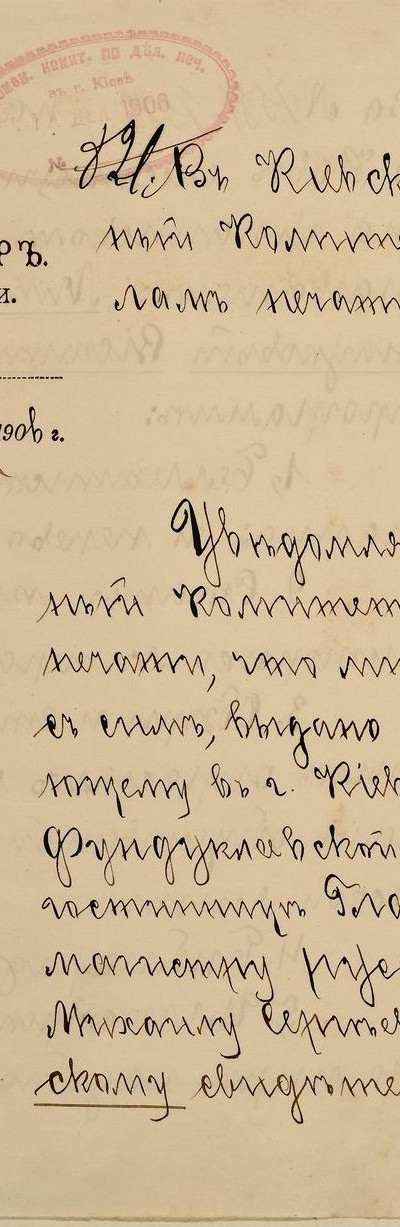 комит. по дѣл. печ.
въ г. Кіевѣ
1906
№
Въ Кіевск
ный Комите
РЪ.
и.
ламъ печати
1906 г.
Увѣдомля
ный Комитет
печати, что мн
съ симъ, выдано
ющему въ г. Кіев
Фундуклеевской
гостинницѣ Гла
магистру
Михаилу Сергѣев
скому свидѣте